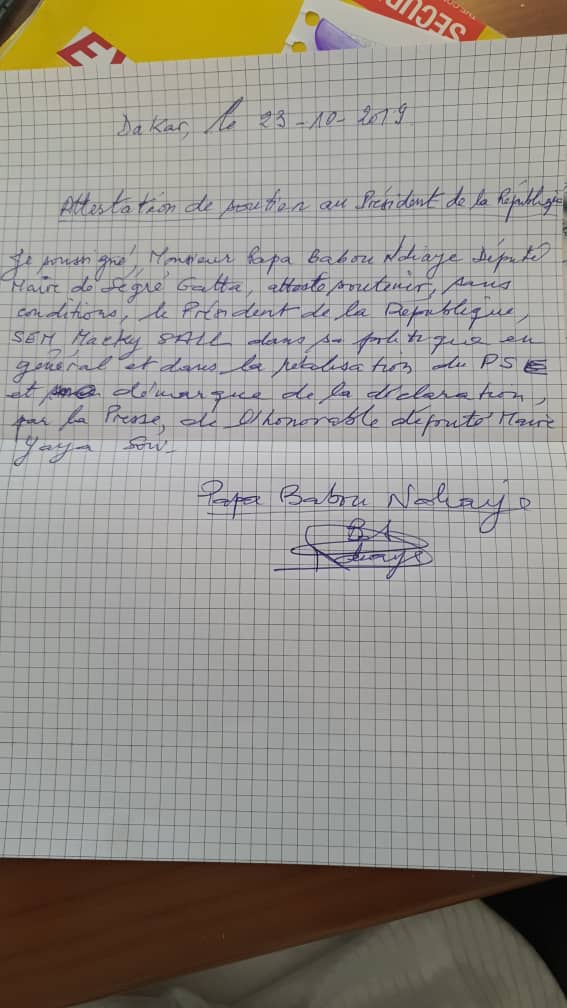 SECUR
Dakar, le 23-10-2019
Attestation de soutien au Président de la République
Je soussigné, Monsieur Papa Babou Ndiaye Député
Maire de Ségré Gatta, atteste soutenir, sans
conditions, le Président de la République,
SEM Macky SALL dans sa politique en
général et dans la réalisation du PSE
et démarque de la déclaration,
par la Presse, de l'honorable député Maire
Yaya Sow.
Papa Babou Ndiaye
BA
Ndiaye